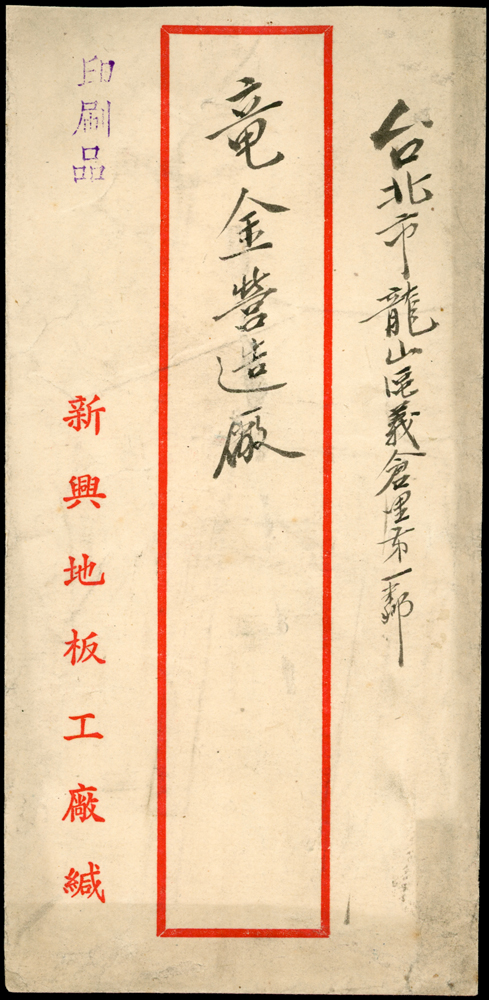 台北市龍山區義倉里第一鄰
竜金營造廠
印刷品
新興地板工廠緘